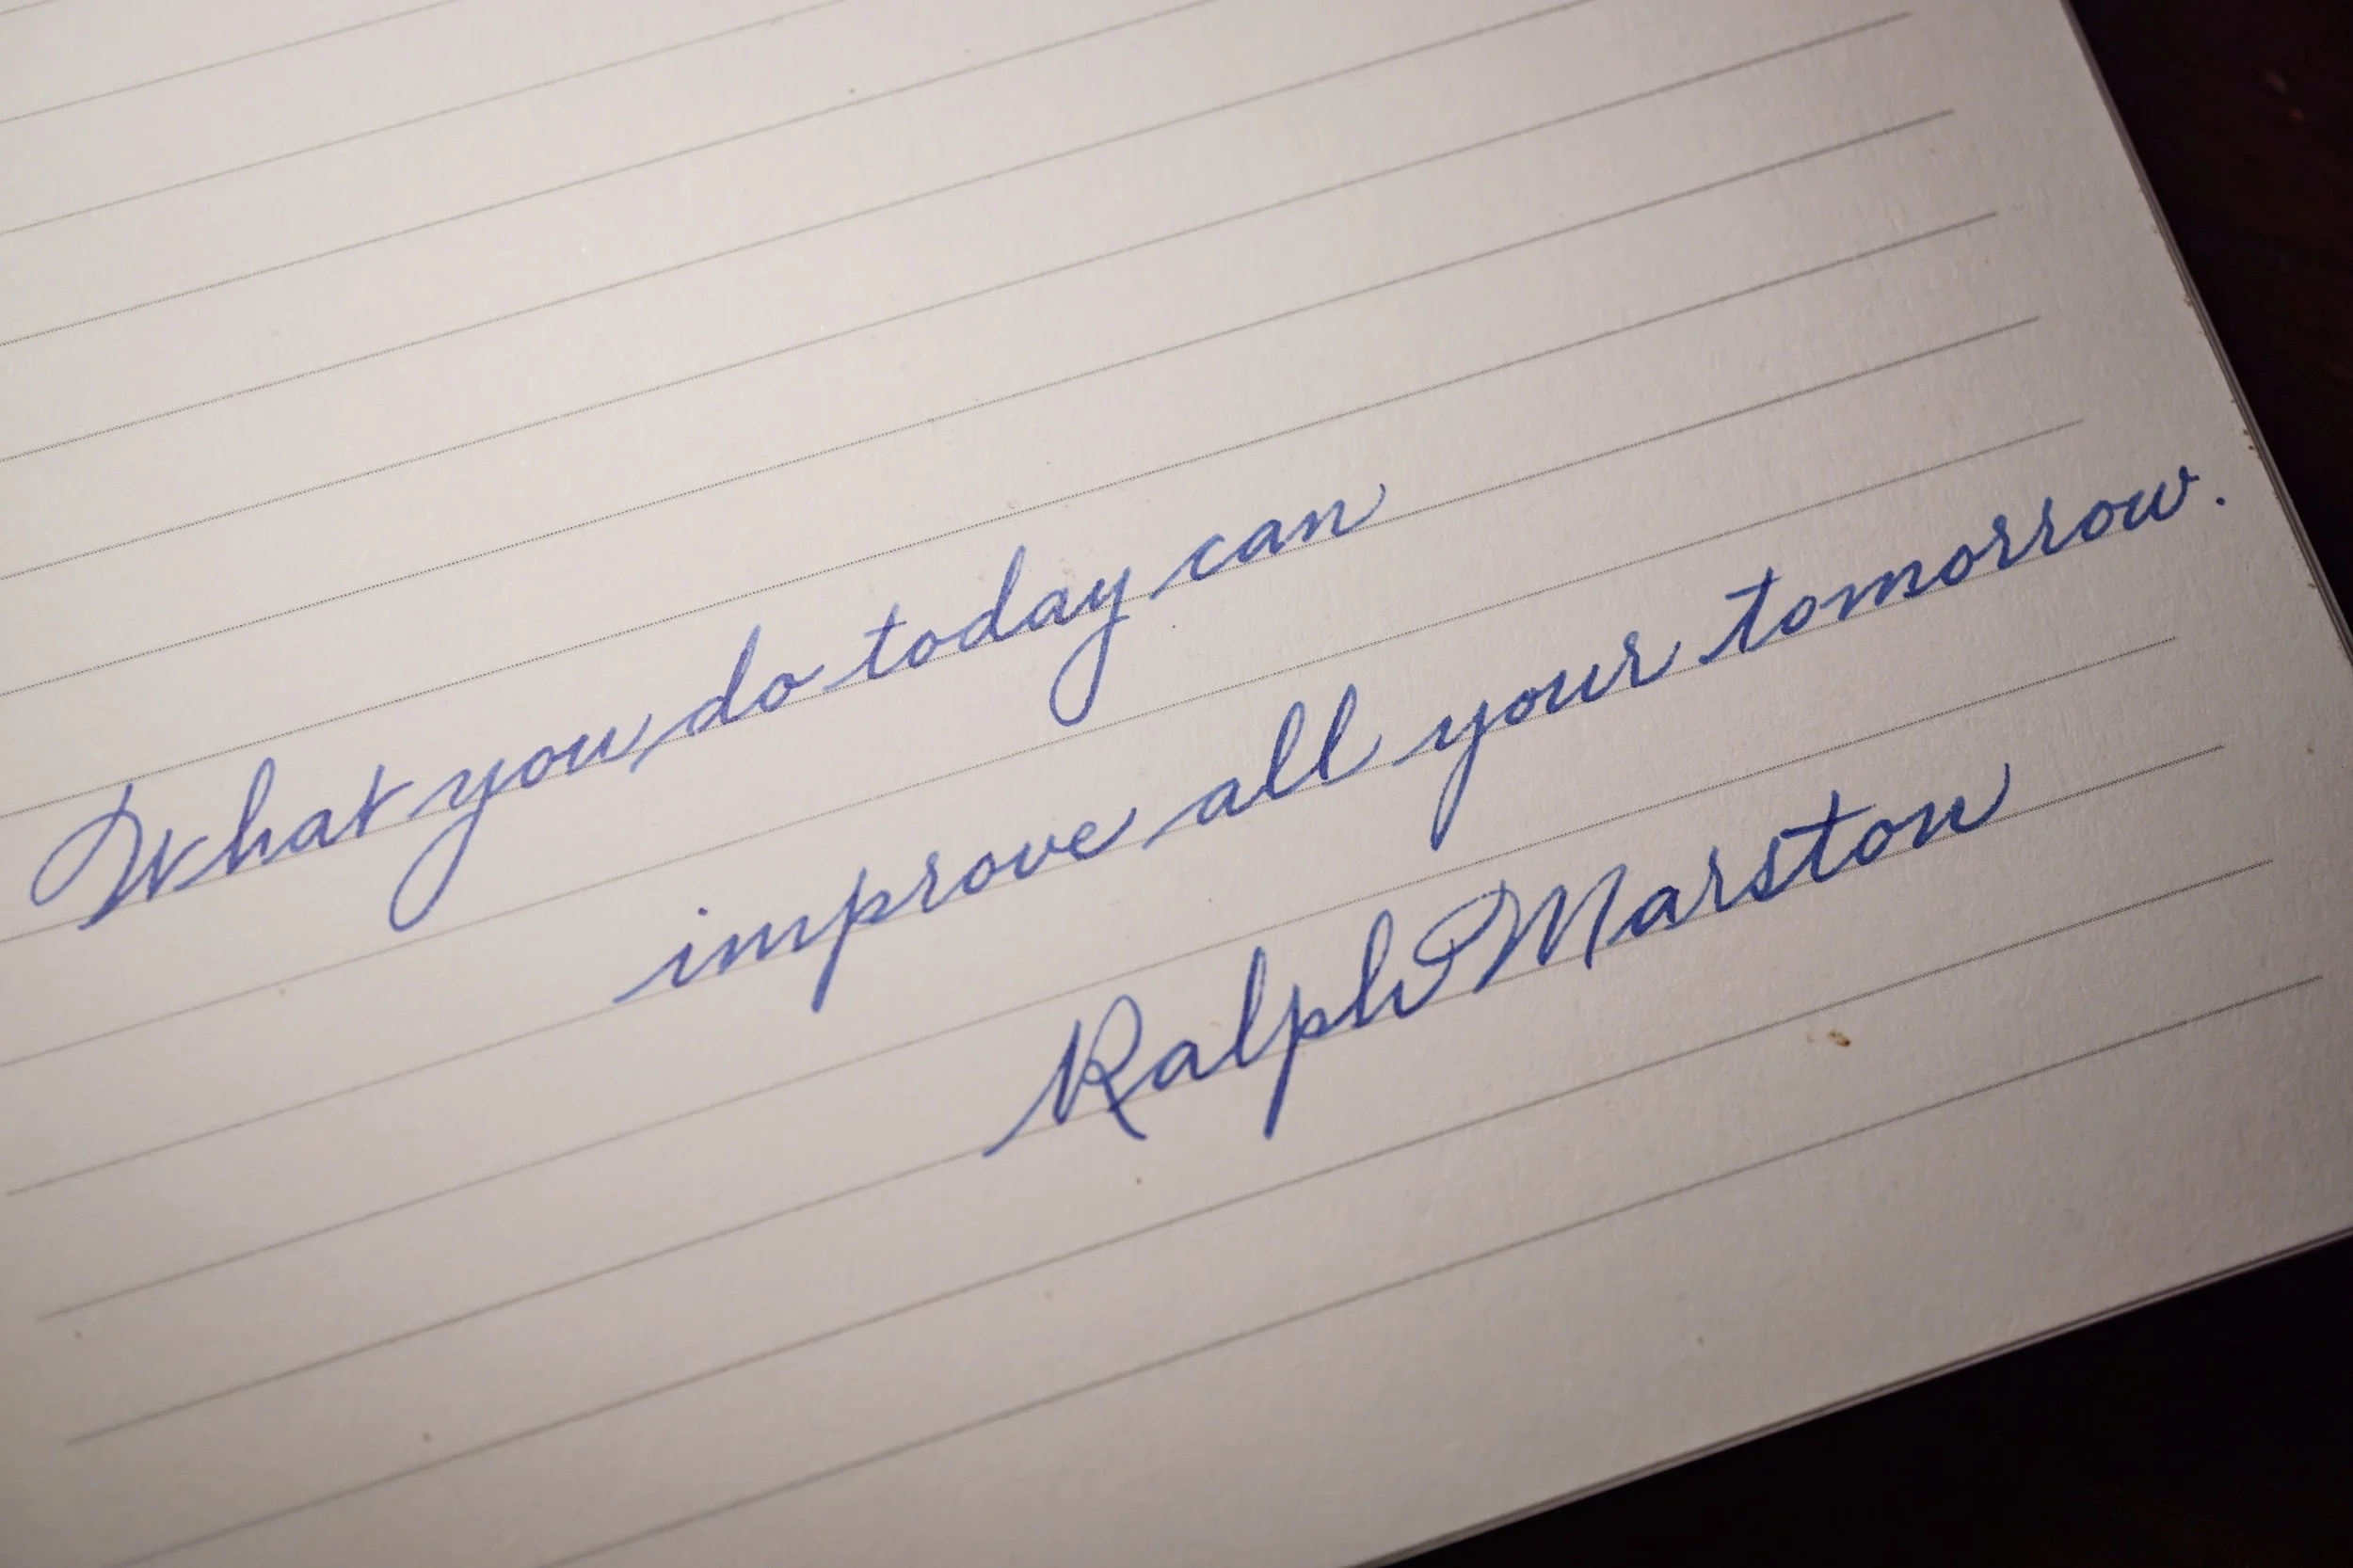 What you do today can
improve all your tomorrow.
Ralph Marston